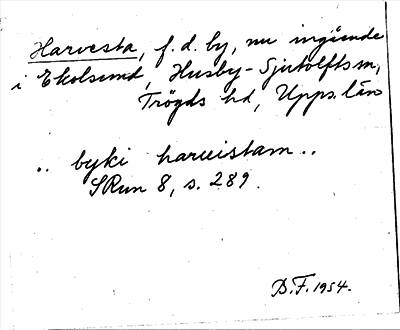 Harvesta, f.d. by, nu ingående
i Ekolsund, Husby-Sjutolfts sn,
Trögds hd, Upps. län
.. byki harueistam ..
SRun 8, s. 289.
D.F. 1954.